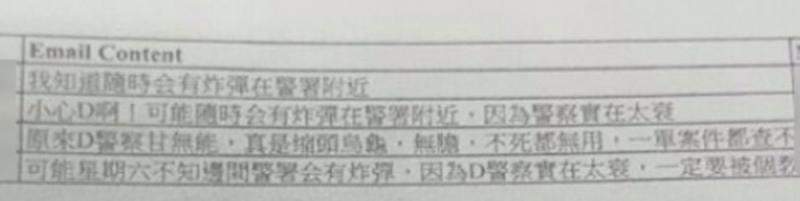 Email Content
我知道隨時会有炸彈在警署附近
小心D啊！可能隨時会有炸彈在警署附近，因為警察實在太衰
原來D警察甘無能，真是縮頭烏龜，無膽，不死都無用，一單案件都查不
可能星期六不知邊間警署会有炸彈，因為D警察實在太衰，一定要被個教